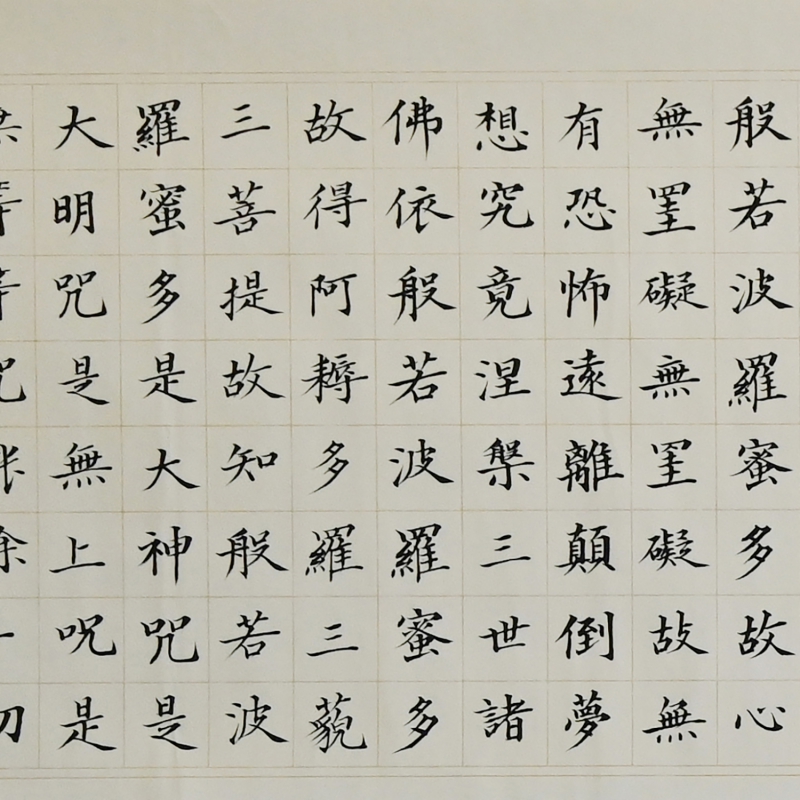 般若波羅蜜多故心
無罣礙無罣礙故無
有恐怖遠離顛倒夢
想究竟涅槃三世諸
佛依般若波羅蜜多
故得阿耨多羅三藐
三菩提故知般若波
羅蜜多是大神咒是
大明咒是無上呪是
等等咒能除一切